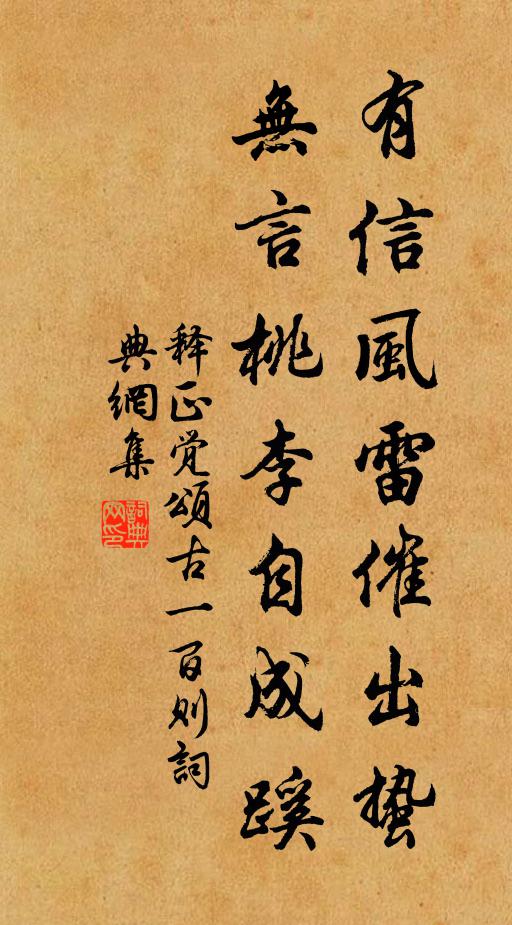 有信風雷催出蛰
無言桃李自成蹊
释正觉頌古一百则詞
典網集
詞典网印